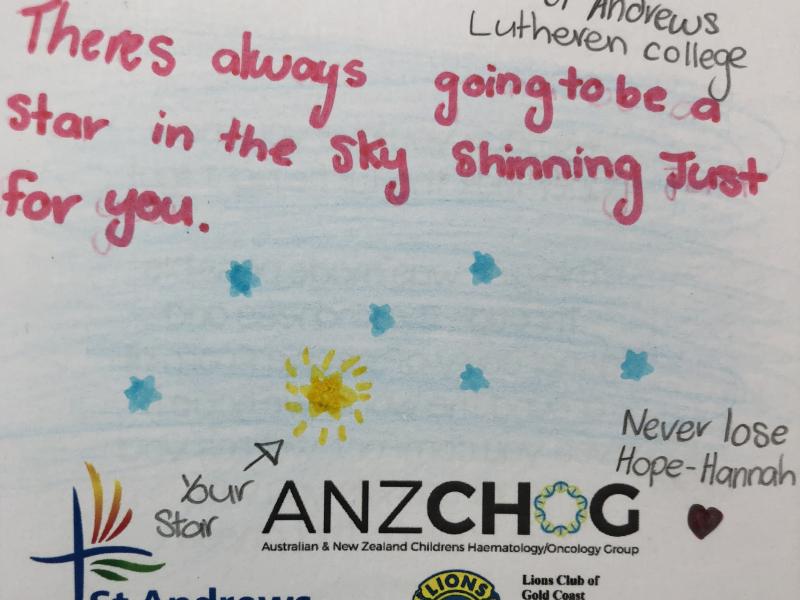 Andrews
Lutheren college
Theres always going to be a
star in the sky shinning Just
for you.
Never lose
Hope-Hannah
Your
Star
ANZCHOG
Australian & New Zealand Childrens Haematology/Oncology Group
St Andrews
LIONS
Lions Club of
Gold Coast